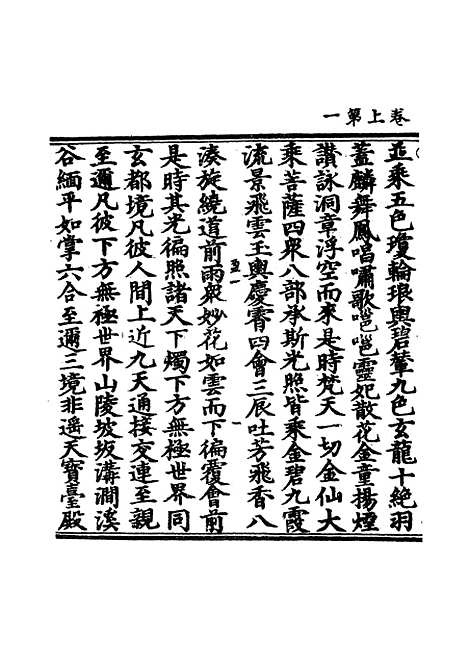 卷上第一
並乘五色瓊輪琅輿碧輦九色玄龍十絶羽
蓋麟舞鳳唱嘯歌邕邕靈妃散花金童揚煙
讃詠洞章浮空而來是時梵天一切金仙大
乘菩薩四衆八部承斯光照皆乘金碧九霞
流景飛雲玉輿慶霄四會三辰吐芳飛香八
湊旋繞道前雨衆妙花如雲而下徧覆會前
是時其光徧照諸天下燭下方無極世界同
玄都境凡彼人間上近九天通接交連至親
至邇凡彼下方無極世界山陵坡坂溝澗溪
谷緬平如掌六合至邇三境非遥天寳臺殿